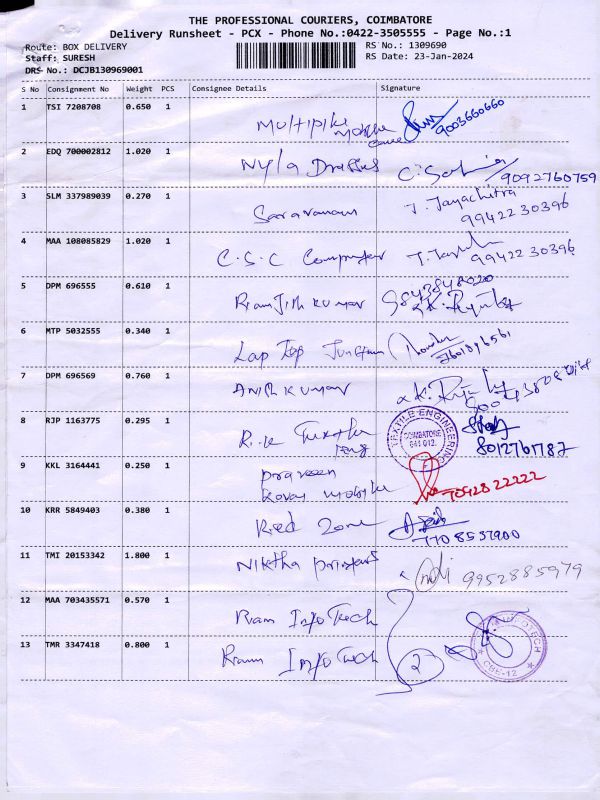 THE PROFESSIONAL COURIERS, COIMBATORE
Delivery Runsheet - PCX - Phone No.:0422-3505555 - Page No.:1
Route: BOX DELIVERY RS No.: 1309690
Staff: SURESH RS Date: 23-Jan-2024
DRS No.: DCJB130969001
S No Consignment No Weight PCS Consignee Details Signature
1 TSI 7208708 0.650 1
Multiple Mobile 9003660660
2 EDQ 700002812 1.020 1
Nyla Dresses 9092760759
3 SLM 337989039 0.270 1
Saravanan J. Jayachitra
9942230396
4 MAA 108085829 1.020 1
C.S.C Computer 9942230396
5 DPM 696555 0.610 1
RamJith Kumar 9843848020
6 MTP 5032555 0.340 1
Lap Top Junction
7 DPM 696569 0.760 1
Anith Kumar
8 RJP 1163775 0.295 1
R.K TEXTILE ENGINEERING
COIMBATORE
641 012.
8012761787
9 KKL 3164441 0.250 1
Praveen
Kovai Mobile 7042822222
10 KRR 5849403 0.380 1
Red Zone
7708537900
11 TMI 20153342 1.800 1
Niktha printers 9952885979
12 MAA 703435571 0.570 1
Ram Info Tech
13 TMR 3347418 0.800 1
Ram Info Tech 2
INFOTECH
CBE-12